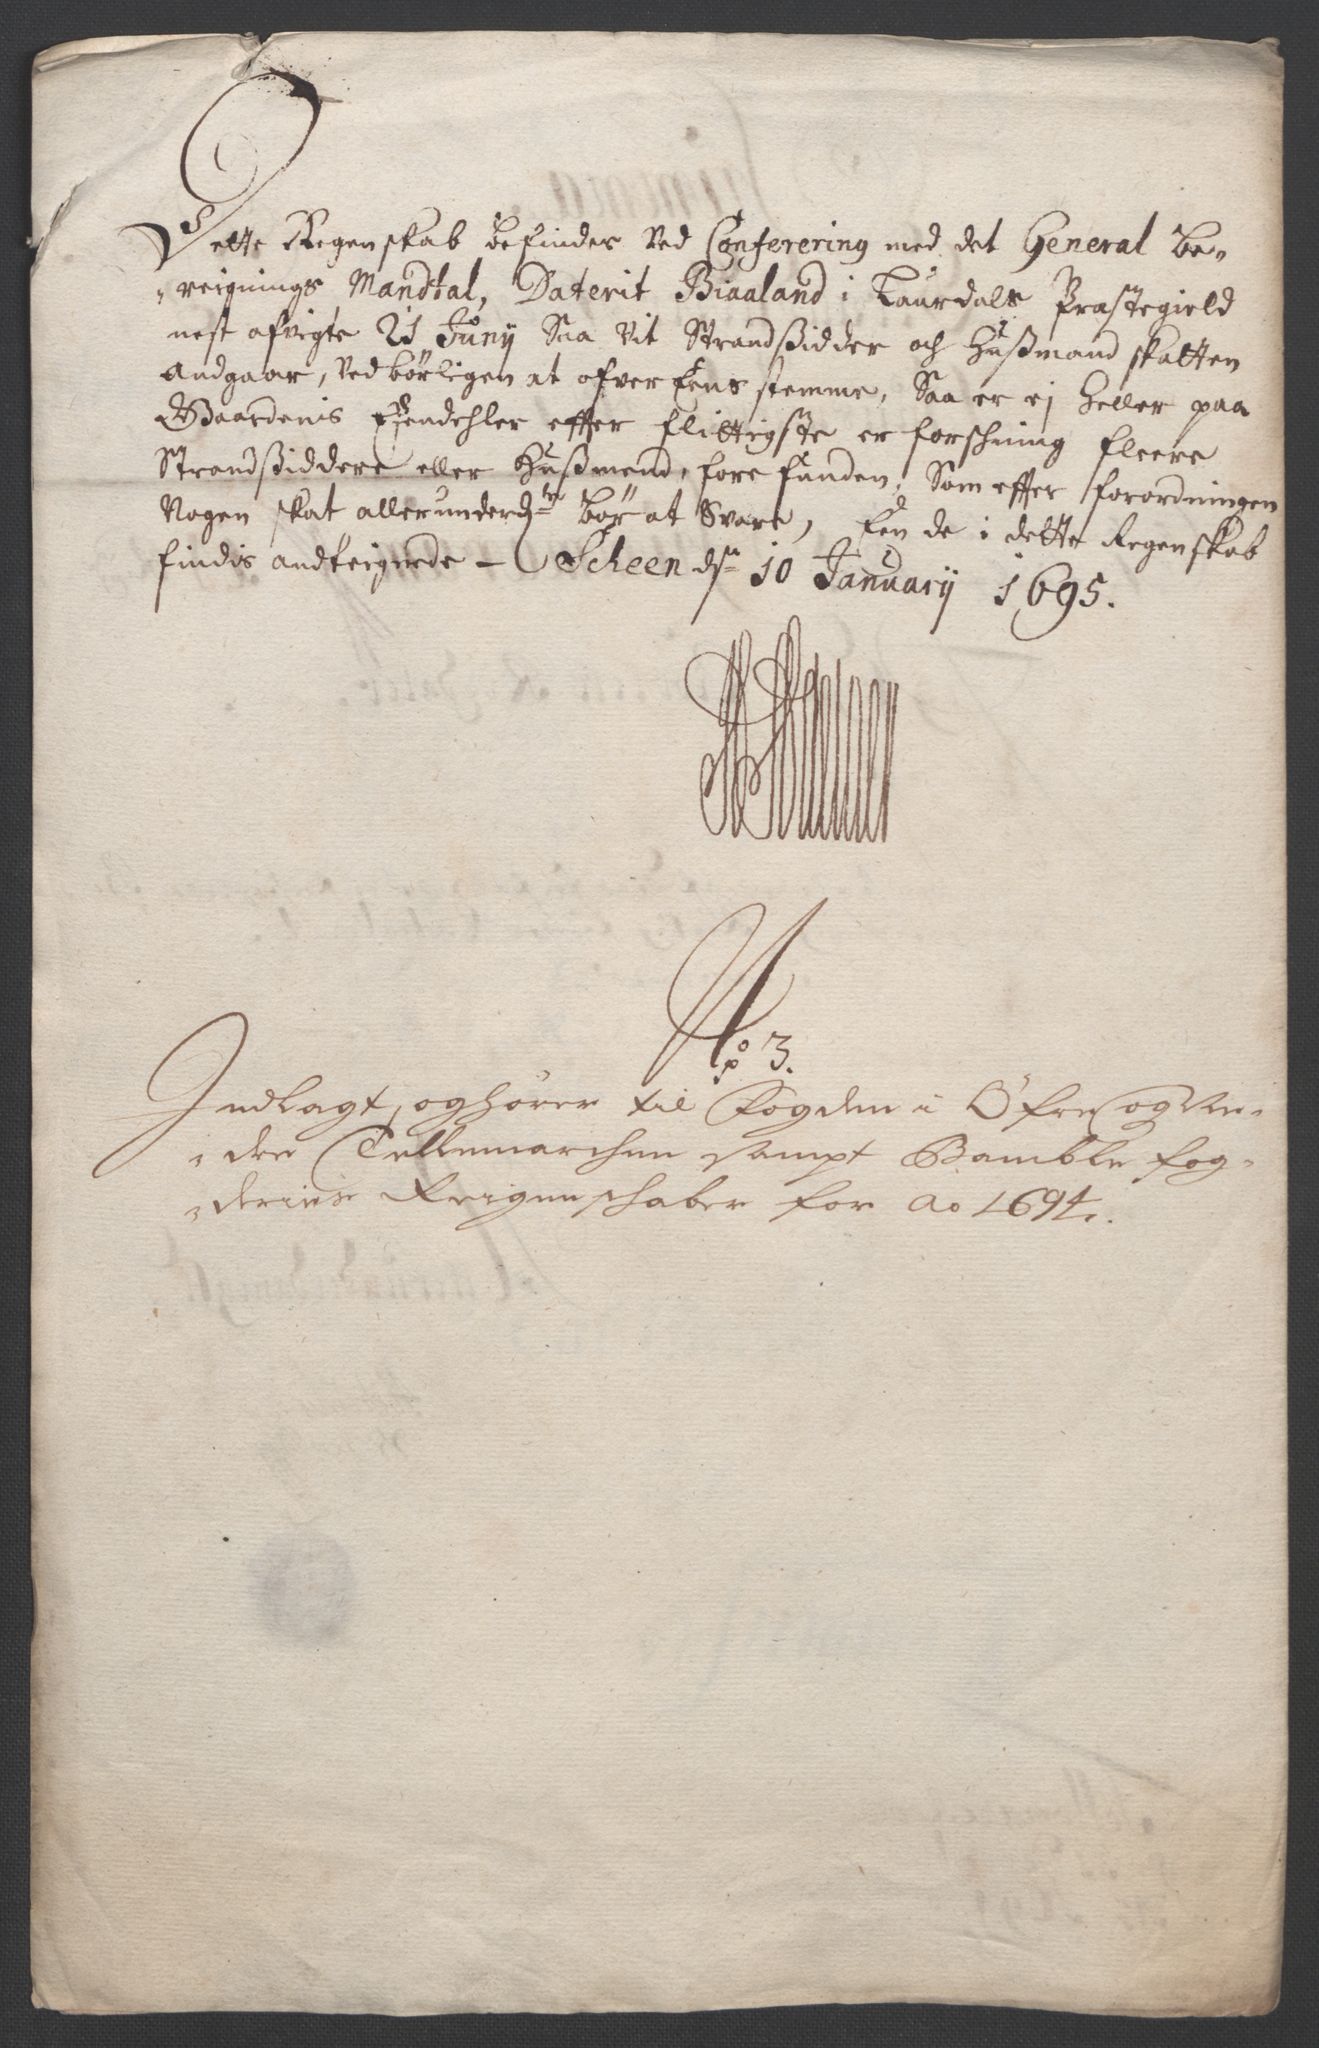 Dette Regenskab befindes Ved Conferering med det General be-
reignings Mandtal, Daterit Biaaland i Laurdals Præstegield
nest afvigte 21 Junÿ Saa vit Strandsidder och Husmand skatten
Andgaar, Ved børligen at ofver Eens stemme, Saa er ej heller paa
Gaardenis Eÿendehler efter flittigste er forschning fleere
Strandsiddere eller Husmend, fore funden, Som efter forordningen
Nogen skat allerunderd: bør at Svare, End de i dette Regenskab
findis andteignede - Scheen dn 10 Januarÿ 1695.
No 3.
Indlagt, og hører til Fogden i Øfre og Ne-
dre Tellemarchen sampt Bamble fog-
deries Reigenschaber for Ao 1694.